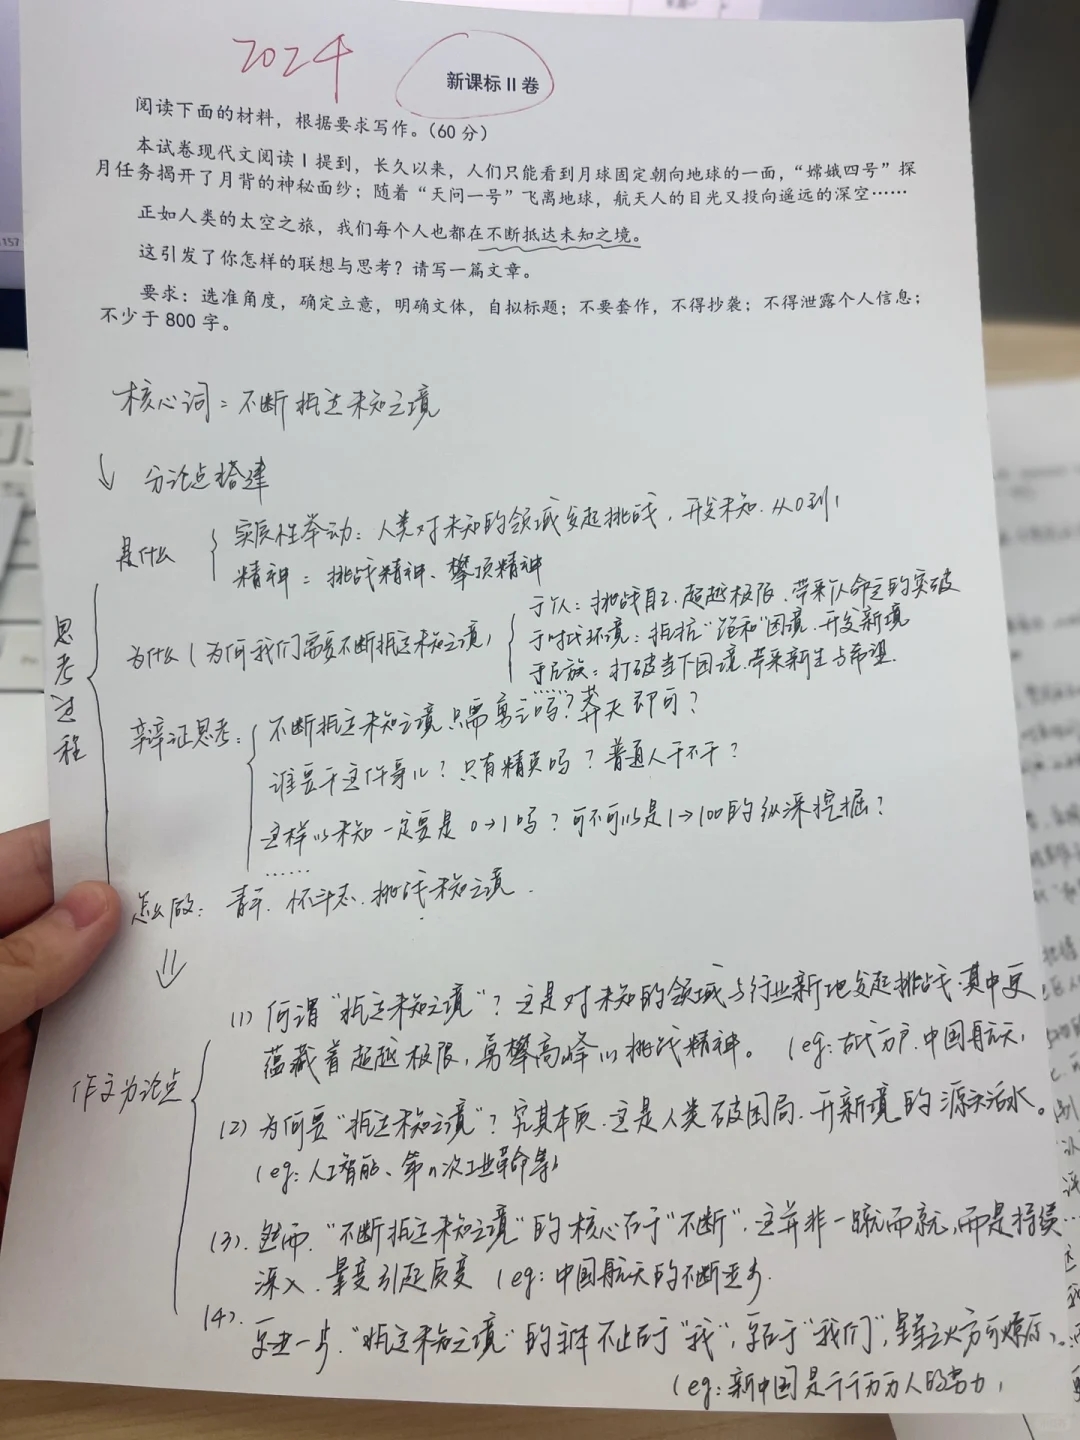 2024
新课标 II 卷
阅读下面的材料，根据要求写作。（60 分）
本试卷现代文阅读 I 提到，长久以来，人们只能看到月球固定朝向地球的一面，“嫦娥四号”探
月任务揭开了月背的神秘面纱；随着“天问一号”飞离地球，航天人的目光又投向遥远的深空……
正如人类的太空之旅，我们每个人也都在不断抵达未知之境。
这引发了你怎样的联想与思考？请写一篇文章。
要求：选准角度，确定立意，明确文体，自拟标题；不要套作，不得抄袭；不得泄露个人信息；
不少于 800 字。
157
核心词：不断抵达未知之境
↓ 分论点搭建
思考过程
是什么
实质性举动：人类对未知的领域发起挑战，开发未知．从0到1
精神：挑战精神、攀顶精神
为什么（为何我们需要不断抵达未知之境）
于个人：挑战自己．超越极限、带来认命之的突破
于时代环境：抵抗“饱和”困境．开发新境
于民族：打破当下困境．带来新生与希望．
……
辩证思考：
不断抵达未知之境只需勇之吗？莽夫即可？
谁要干这件事儿？只有精英吗？普通人干不干？
这样的未知一定要是0→1吗？可不可以是1→100的纵深挖掘？
……
怎么做：青年．怀斗志．挑战未知之境．
⇓
作文分论点
(1) 何谓“抵达未知之境”？这是对未知的领域与行业新地发起挑战．其中更
蕴藏着超越极限，勇攀高峰的挑战精神。（eg：古代万户．中国航天，
(2) 为何要“抵达未知之境”？究其本质．这是人类破困局．开新境的源头活水。
（eg：人工智能、第n次工业革命等）
(3). 然而．“不断抵达未知之境”的核心在于“不断”．这并非一蹴而就，而是持续
深入．量变引起质变（eg：中国航天的不断进步．
(4). 更进一步．“抵达未知之境”的主体不止于“我”，更在于“我们”，星星之火方可燎原、
（eg：新中国是千千万万人的努力，